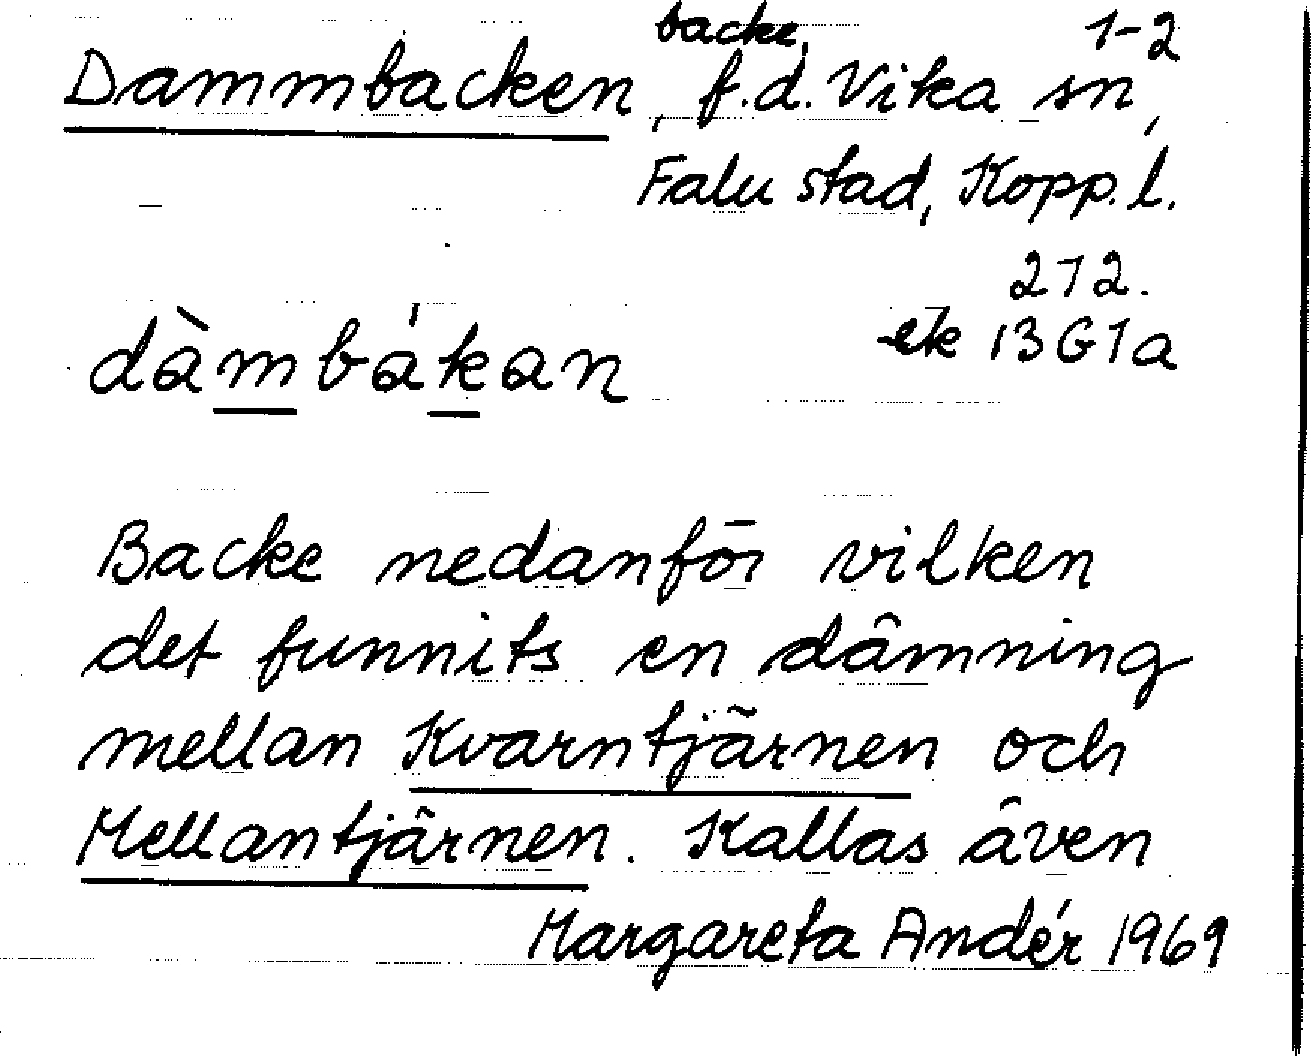 backe, 1-2
Dammbacken, f.d. Vika sn,
Falu stad, Kopp. l.
212.
ek 13G1a
dàmbákan
Backe nedanför vilken
det funnits en dämning
mellan Kvarntjärnen och
Mellantjärnen. Kallas även
Margareta Andér 1969